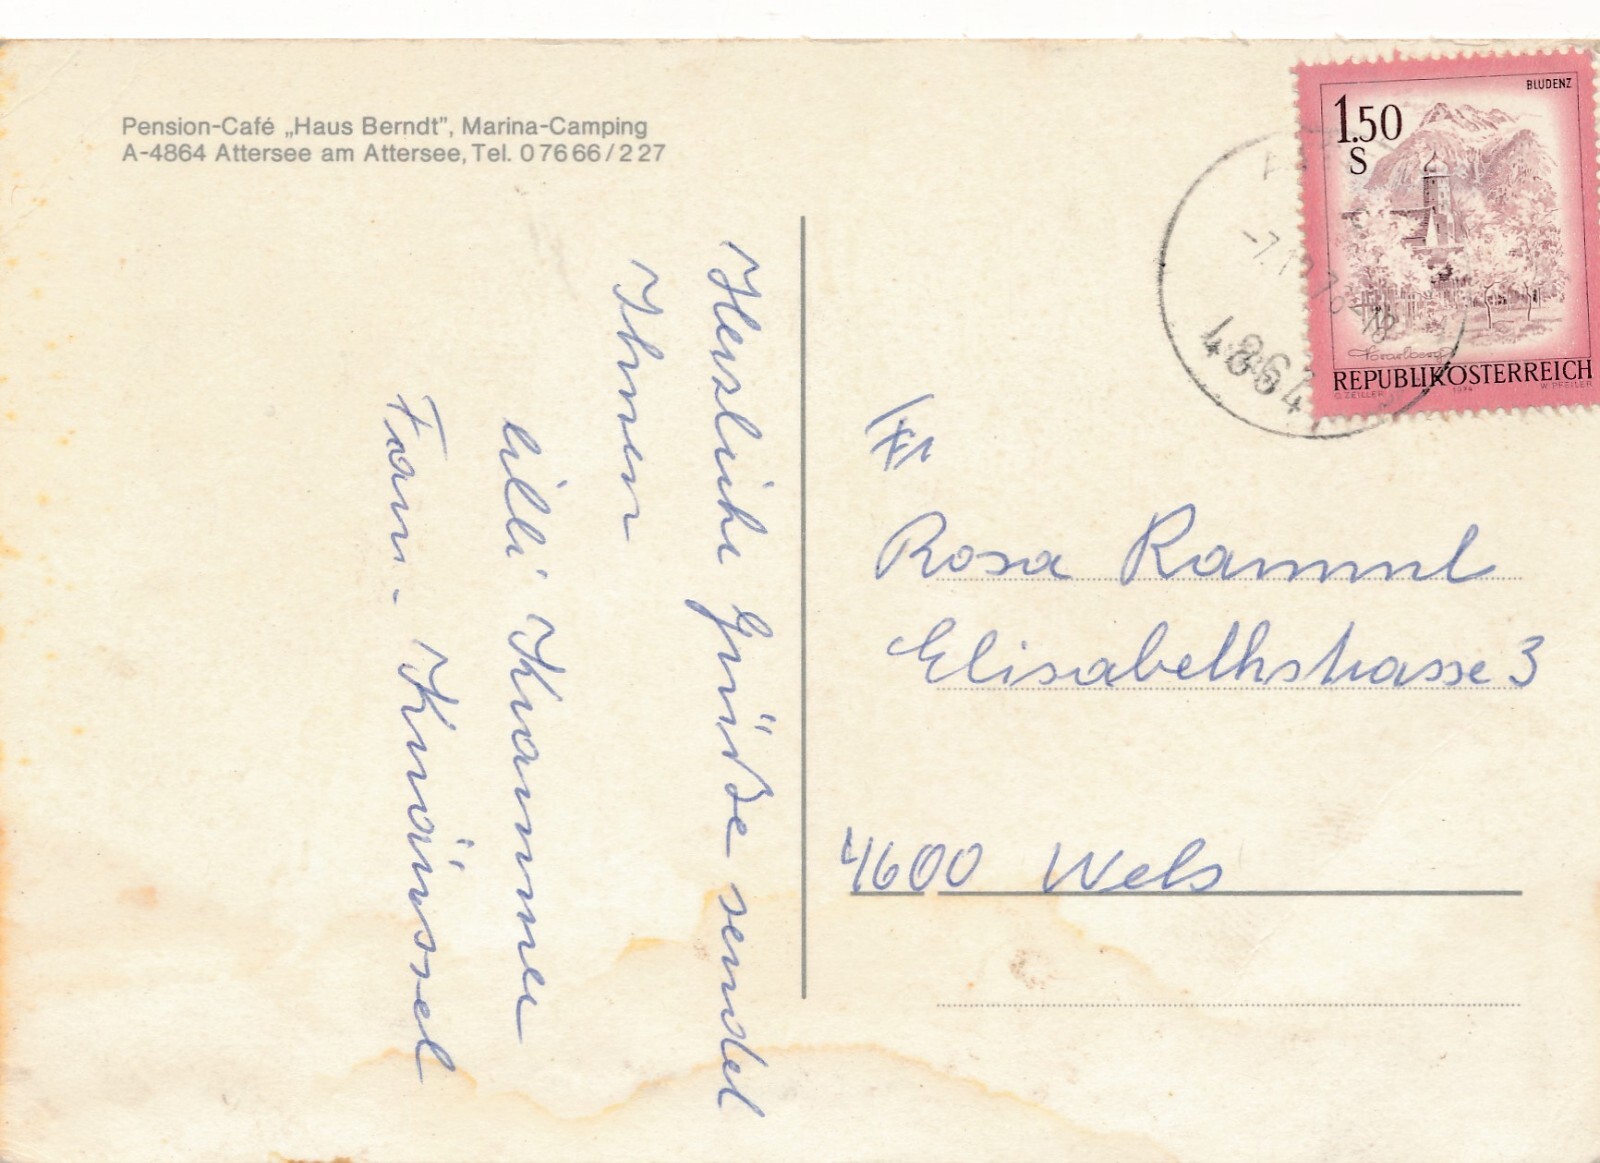 Pension-Café „Haus Berndt”, Marina-Camping
A-4864 Attersee am Attersee, Tel. 0 76 66 / 2 27
Herzliche Grüße sendet
Ihnen
Lilli Krammer
Fam.
BLUDENZ
1.50
S
Vorarlberg
REPUBLIK ÖSTERREICH
O. ZEILLER 1974 W. PFEILER
4864
Rosa Ramml
Elisabethstrasse 3
4600 Wels